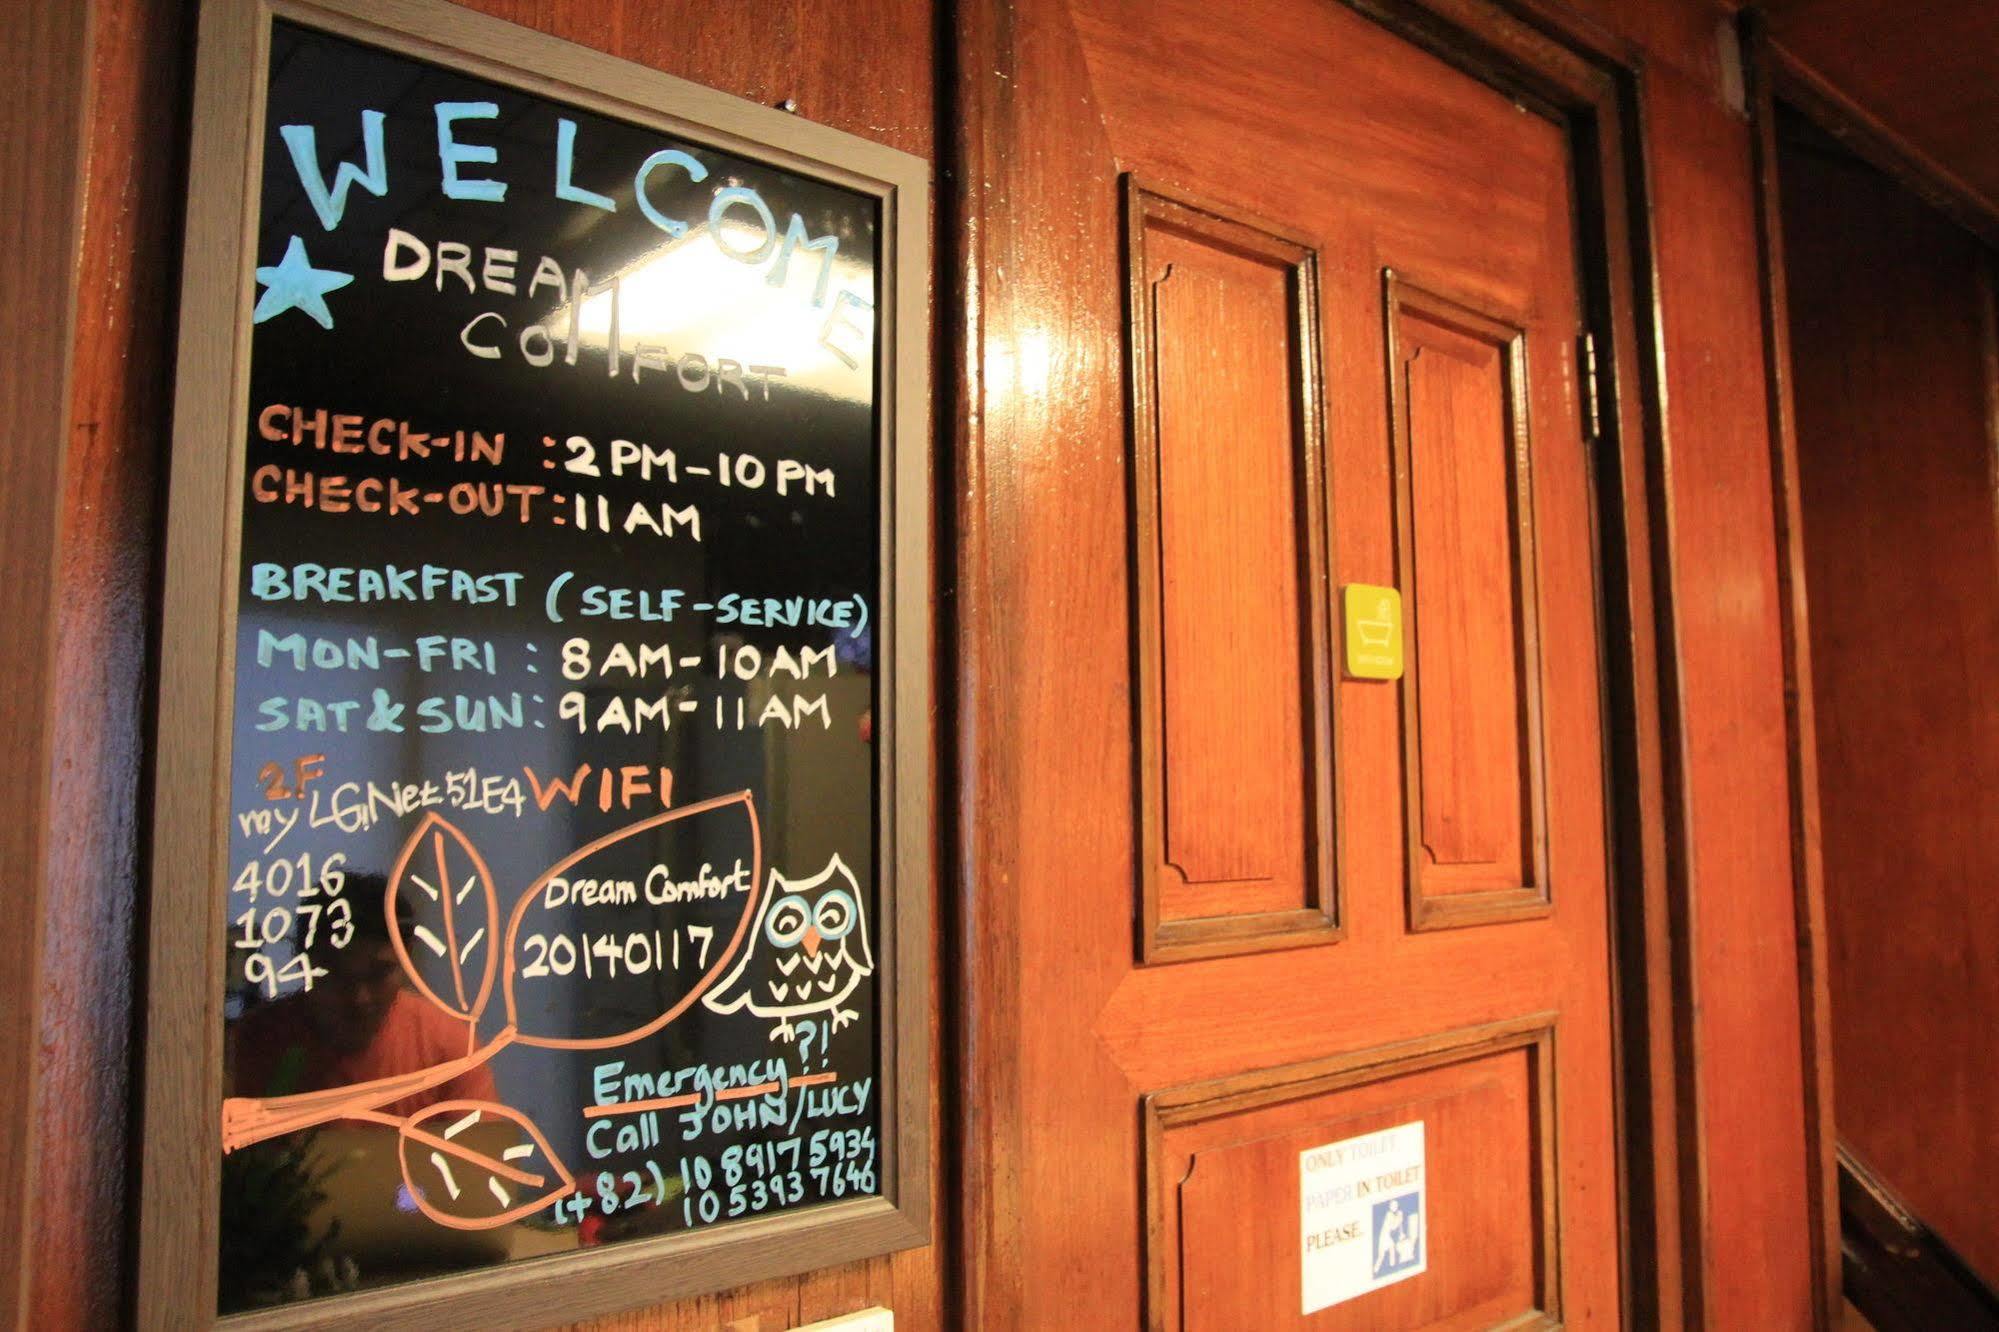 WELCOME
DREAM
COMFORT
CHECK-IN : 2 PM - 10 PM
CHECK-OUT : 11 AM
BREAKFAST (SELF-SERVICE)
MON-FRI : 8 AM - 10 AM
SAT & SUN : 9 AM - 11 AM
2F
WIFI
myLGNet51E4
4016
1073
94
Dream Comfort
20140117
Emergency ?!
Call JOHN/LUCY
(+82) 10 8917 5934
10 5393 7646
ONLY TOILET
PAPER IN TOILET
PLEASE.